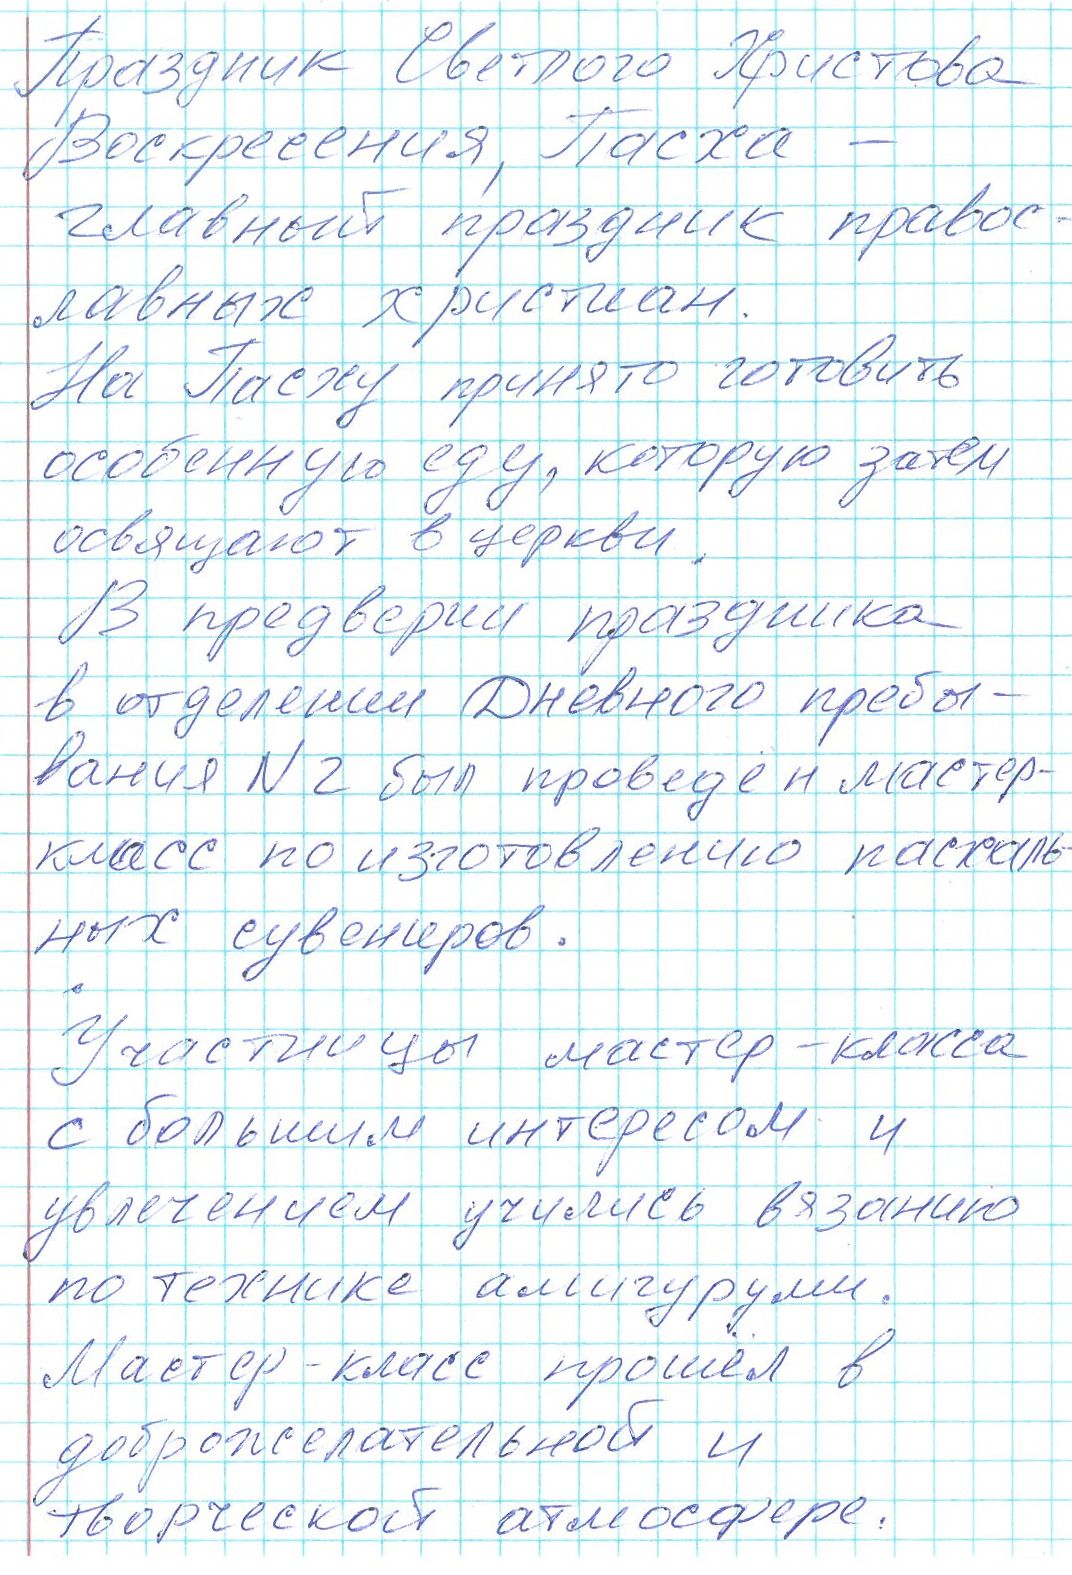 Праздник Светлого Христова
Воскресения, Пасха –
главный праздник правос-
лавных христиан.
На Пасху принято готовить
особенную еду, которую затем
освящают в церкви.
В предверии праздника
в отделении Дневного пребы-
вания N 2 был проведён мастер-
класс по изготовлению пасхаль-
ных сувениров.
Участницы мастер-класса
с большим интересом и
увлечением учились вязанию
по технике амигуруми.
Мастер-класс прошёл в
доброжелательной и
творческой атмосфере.